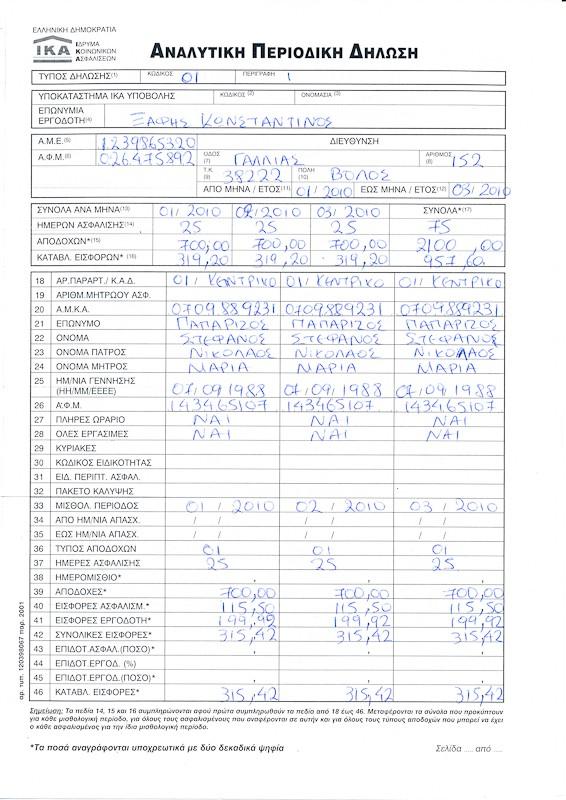 ΕΛΛΗΝΙΚΗ ΔΗΜΟΚΡΑΤΙΑ
ΙΚΑ ΙΔΡΥΜΑ ΚΟΙΝΩΝΙΚΩΝ ΑΣΦΑΛΙΣΕΩΝ
ΑΝΑΛΥΤΙΚΗ ΠΕΡΙΟΔΙΚΗ ΔΗΛΩΣΗ
ΤΥΠΟΣ ΔΗΛΩΣΗΣ(1) ΚΩΔΙΚΟΣ 01 ΠΕΡΙΓΡΑΦΗ 1
ΥΠΟΚΑΤΑΣΤΗΜΑ ΙΚΑ ΥΠΟΒΟΛΗΣ ΚΩΔΙΚΟΣ (2) ΟΝΟΜΑΣΙΑ (3)
ΕΠΩΝΥΜΙΑ ΕΡΓΟΔΟΤΗ(4) ΞΑΦΗΣ ΚΩΝΣΤΑΝΤΙΝΟΣ
Α.Μ.Ε.(5) 1239865320 ΔΙΕΥΘΥΝΣΗ
Α.Φ.Μ.(6) 026475892 ΟΔΟΣ (7) ΓΑΛΛΙΑΣ ΑΡΙΘΜΟΣ (8) 152
Τ.Κ. (9) 38222 ΠΟΛΗ (10) ΒΟΛΟΣ
ΑΠΟ ΜΗΝΑ / ΕΤΟΣ(11) 01/2010 ΕΩΣ ΜΗΝΑ/ΕΤΟΣ(12) 03/2010
ΣΥΝΟΛΑ ΑΝΑ ΜΗΝΑ(13) 01/2010 02/2010 03/2010 ΣΥΝΟΛΑ*(17)
ΗΜΕΡΩΝ ΑΣΦΑΛΙΣΗΣ(14) 25 25 25 75
ΑΠΟΔΟΧΩΝ*(15) 700,00 700,00 700,00 2100,00
ΚΑΤΑΒΛ. ΕΙΣΦΟΡΩΝ*(16) 319,20 319,20 319,20 957,60
18 ΑΡ.ΠΑΡΑΡΤ./ Κ.Α.Δ. 01/ ΚΕΝΤΡΙΚΟ 01/ ΚΕΝΤΡΙΚΟ 01/ ΚΕΝΤΡΙΚΟ
19 ΑΡΙΘΜ.ΜΗΤΡΩΟΥ ΑΣΦ.
20 Α.Μ.Κ.Α. 0709889231 0709889231 0709889231
21 ΕΠΩΝΥΜΟ ΠΑΠΑΡΙΖΟΣ ΠΑΠΑΡΙΖΟΣ ΠΑΠΑΡΙΖΟΣ
22 ΟΝΟΜΑ ΣΤΕΦΑΝΟΣ ΣΤΕΦΑΝΟΣ ΣΤΕΦΑΝΟΣ
23 ΟΝΟΜΑ ΠΑΤΡΟΣ ΝΙΚΟΛΑΟΣ ΝΙΚΟΛΑΟΣ ΝΙΚΟΛΑΟΣ
24 ΟΝΟΜΑ ΜΗΤΡΟΣ ΜΑΡΙΑ ΜΑΡΙΑ ΜΑΡΙΑ
25 ΗΜ/ΝΙΑ ΓΕΝΝΗΣΗΣ (ΗΗ/ΜΜ/ΕΕΕΕ) 07/09/1988 07/09/1988 07/09/1988
26 Α.Φ.Μ. 143465107 143465107 143465107
27 ΠΛΗΡΕΣ ΩΡΑΡΙΟ ΝΑΙ ΝΑΙ ΝΑΙ
28 ΟΛΕΣ ΕΡΓΑΣΙΜΕΣ ΝΑΙ ΝΑΙ ΝΑΙ
29 ΚΥΡΙΑΚΕΣ
30 ΚΩΔΙΚΟΣ ΕΙΔΙΚΟΤΗΤΑΣ
31 ΕΙΔ. ΠΕΡΙΠΤ. ΑΣΦΑΛ.
32 ΠΑΚΕΤΟ ΚΑΛΥΨΗΣ
33 ΜΙΣΘΟΛ. ΠΕΡΙΟΔΟΣ 01 / 2010 02 / 2010 03 / 2010
34 ΑΠΟ ΗΜ/ΝΙΑ ΑΠΑΣΧ. / / / / / /
35 ΕΩΣ ΗΜ/ΝΙΑ ΑΠΑΣΧ. / / / / / /
36 ΤΥΠΟΣ ΑΠΟΔΟΧΩΝ 01 01 01
37 ΗΜΕΡΕΣ ΑΣΦΑΛΙΣΗΣ 25 25 25
38 ΗΜΕΡΟΜΙΣΘΙΟ* , , ,
39 ΑΠΟΔΟΧΕΣ* 700,00 700,00 700,00
40 ΕΙΣΦΟΡΕΣ ΑΣΦΑΛΙΣΜ.* 115,50 115,50 115,50
41 ΕΙΣΦΟΡΕΣ ΕΡΓΟΔΟΤΗ* 199,92 199,92 199,92
42 ΣΥΝΟΛΙΚΕΣ ΕΙΣΦΟΡΕΣ* 315,42 315,42 315,42
43 ΕΠΙΔΟΤ.ΑΣΦΑΛ.(ΠΟΣΟ)* , , ,
44 ΕΠΙΔΟΤ.ΕΡΓΟΔ. (%)
45 ΕΠΙΔΟΤ.ΕΡΓΟΔ.(ΠΟΣΟ)* , , ,
46 ΚΑΤΑΒΛ. ΕΙΣΦΟΡΕΣ* 315,42 315,42 315,42
αρ. τυπ. 120398067 παρ. 2001
Σημείωση: Τα πεδία 14, 15 και 16 συμπληρώνονται αφού πρώτα συμπληρωθούν τα πεδία από 18 έως 46. Μεταφέρονται τα σύνολα που προκύπτουν
για κάθε μισθολογική περίοδο, για όλους τους ασφαλισμένους που αναφέρονται σε αυτήν και για όλους τους τύπους αποδοχών που μπορεί να έχει
ο κάθε ασφαλισμένος για την ίδια μισθολογική περίοδο.
*Τα ποσά αναγράφονται υποχρεωτικά με δύο δεκαδικά ψηφία Σελίδα ..... από .....